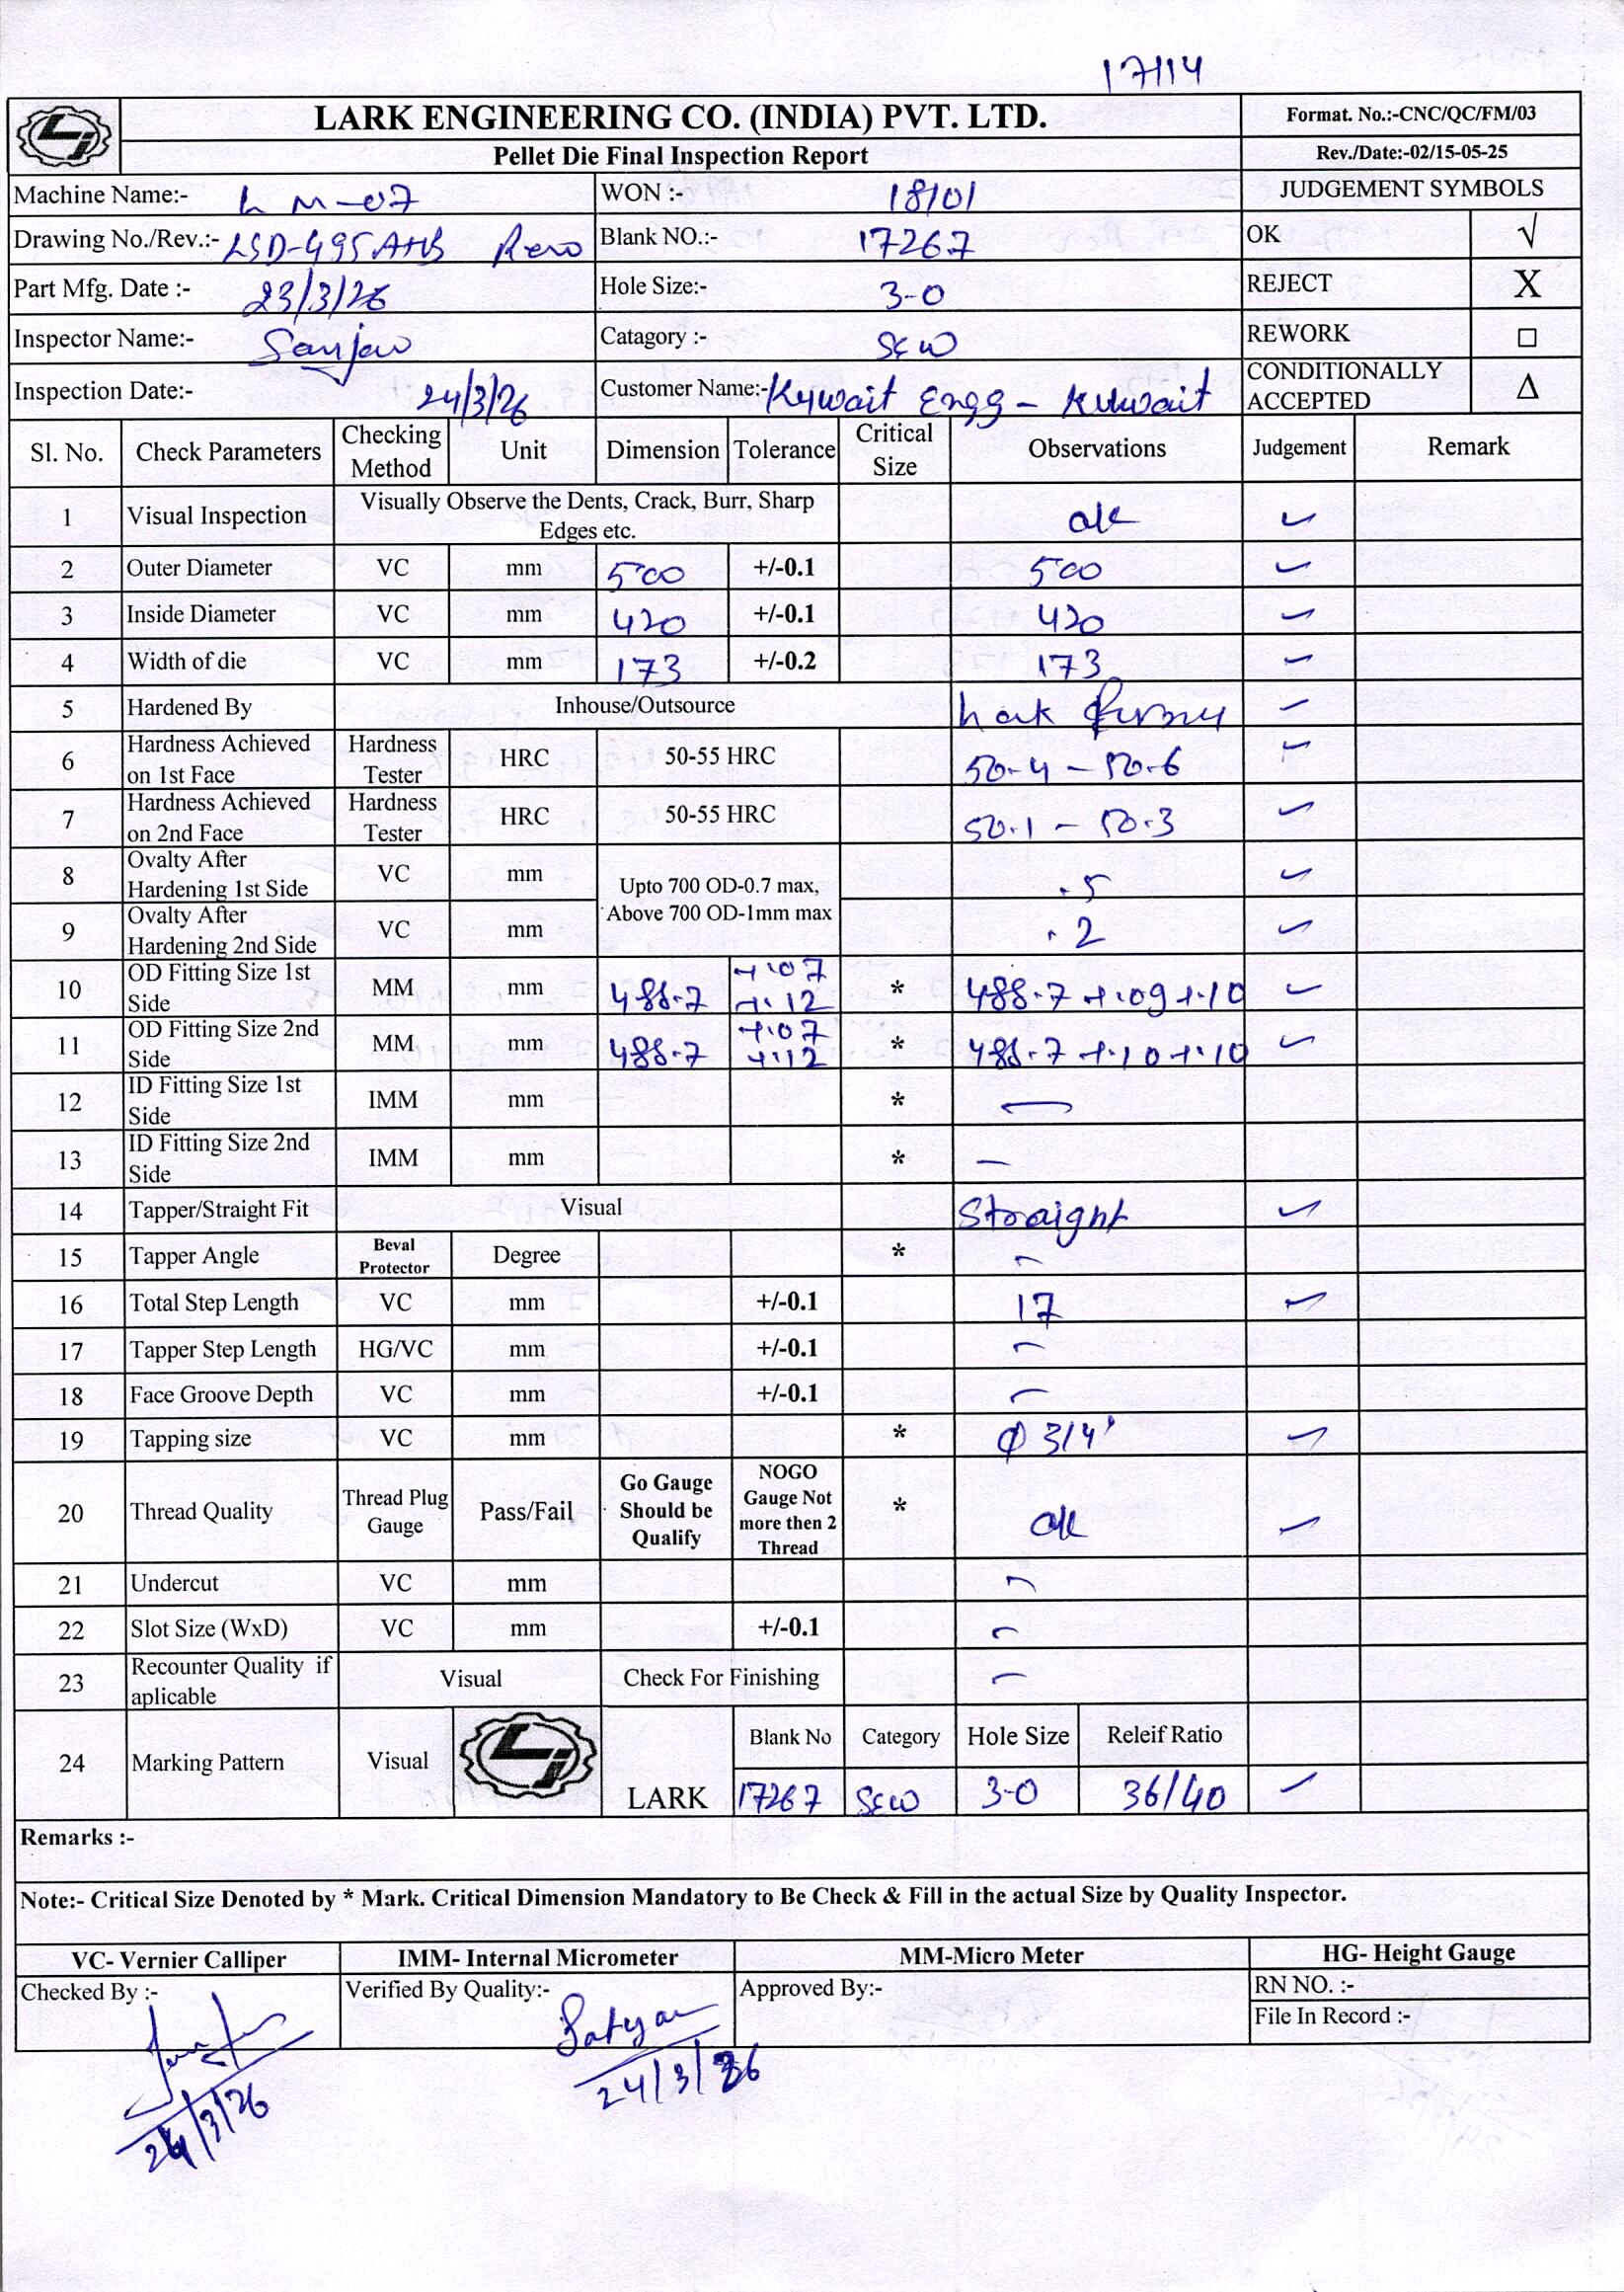 17114
LARK ENGINEERING CO. (INDIA) PVT. LTD.
Format. No.:-CNC/QC/FM/03
Pellet Die Final Inspection Report
Rev./Date:-02/15-05-25
Machine Name:- LM-07 WON :- 18101 JUDGEMENT SYMBOLS
Drawing No./Rev.:- LSD-495AHB Rev0 Blank NO.:- 17267 OK √
Part Mfg. Date :- 23/3/26 Hole Size:- 3-0 REJECT X
Inspector Name:- Sanjav Catagory :- SCW REWORK □
Inspection Date:- 24/3/26 Customer Name:- Kuwait Engg - Kuwait CONDITIONALLY ACCEPTED Δ
Sl. No. Check Parameters Checking Method Unit Dimension Tolerance Critical Size Observations Judgement Remark
1 Visual Inspection Visually Observe the Dents, Crack, Burr, Sharp Edges etc. ok ✓
2 Outer Diameter VC mm 500 +/-0.1 500 ✓
3 Inside Diameter VC mm 420 +/-0.1 420 ✓
4 Width of die VC mm 173 +/-0.2 173 ✓
5 Hardened By Inhouse/Outsource ✓
6 Hardness Achieved on 1st Face Hardness Tester HRC 50-55 HRC 50.4 - 50.6 ✓
7 Hardness Achieved on 2nd Face Hardness Tester HRC 50-55 HRC 50.1 - 50.3 ✓
8 Ovalty After Hardening 1st Side VC mm Upto 700 OD-0.7 max, Above 700 OD-1mm max .5 ✓
9 Ovalty After Hardening 2nd Side VC mm .2 ✓
10 OD Fitting Size 1st Side MM mm 488.7 +.07 +.12 * 488.7 +.09 +.10 ✓
11 OD Fitting Size 2nd Side MM mm 488.7 +.07 +.12 * 488.7 +.10 +.10 ✓
12 ID Fitting Size 1st Side IMM mm * —
13 ID Fitting Size 2nd Side IMM mm * —
14 Tapper/Straight Fit Visual Straight ✓
15 Tapper Angle Beval Protector Degree * —
16 Total Step Length VC mm +/-0.1 17 ✓
17 Tapper Step Length HG/VC mm +/-0.1 —
18 Face Groove Depth VC mm +/-0.1 —
19 Tapping size VC mm * Φ 3/4' ✓
20 Thread Quality Thread Plug Gauge Pass/Fail Go Gauge Should be Qualify NOGO Gauge Not more then 2 Thread * ok ✓
21 Undercut VC mm —
22 Slot Size (WxD) VC mm +/-0.1 —
23 Recounter Quality if aplicable Visual Check For Finishing —
24 Marking Pattern Visual LARK Blank No Category Hole Size Releif Ratio
17267 SCW 3-0 36/40 ✓
Remarks :-
Note:- Critical Size Denoted by * Mark. Critical Dimension Mandatory to Be Check & Fill in the actual Size by Quality Inspector.
VC- Vernier Calliper IMM- Internal Micrometer MM-Micro Meter HG- Height Gauge
Checked By :- Verified By Quality:- Approved By:- RN NO. :-
File In Record :-
Satyan
24/3/26
24/3/26